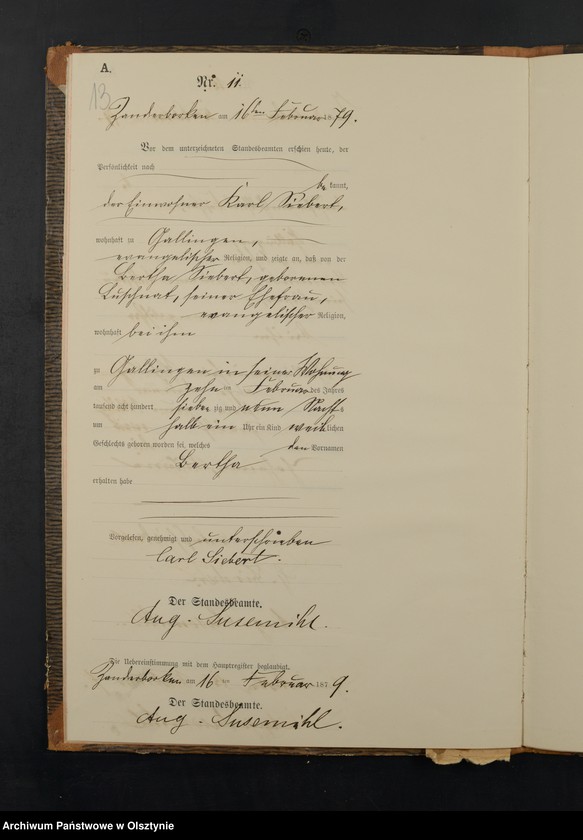 A.
13.
Nr. 11
Zanderborken am 16ten Februar 1879.
Vor dem unterzeichneten Standesbeamten erschien heute, der
Persönlichkeit nach
bekannt,
der Einwohner Karl Siebert,
wohnhaft zu Gallingen,
evangelischer Religion, und zeigte an, daß von der
Bertha Siebert, geborenen
Luschnat, seiner Ehefrau,
evangelischer Religion,
wohnhaft bei ihm
zu Gallingen in seiner Wohnung
am zehnten Februar des Jahres
tausend acht hundert siebenzig und neun Nachts
um halb ein Uhr ein Kind weiblichen
Geschlechts geboren worden sei, welches den Vornamen
Bertha
erhalten habe
Vorgelesen, genehmigt und unterschrieben
Carl Siebert.
Der Standesbeamte.
Aug. Susemihl.
Die Uebereinstimmung mit dem Hauptregister beglaubigt.
Zanderborken am 16ten Februar 1879.
Der Standesbeamte.
Aug. Susemihl.
Archiwum Państwowe w Olsztynie